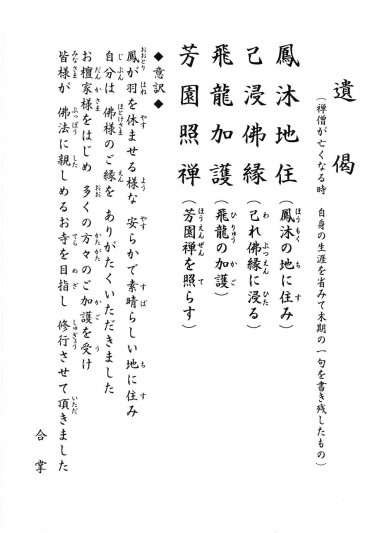 遺偈
(禅僧が亡くなる時 自身の生涯を省みて末期の一句を書き残したもの)
鳳沐地住(鳳沐の地に住み)
己浸佛縁(己れ佛縁に浸る)
飛龍加護(飛龍の加護)
芳園照禅(芳園禅を照らす)
◆意訳◆
鳳が羽を休ませる様な 安らかで素晴らしい地に住み
自分は 佛様のご縁を ありがたくいただきました
お檀家様をはじめ 多くの方々のご加護を受け
皆様が 佛法に親しめるお寺を目指し 修行させて頂きました
合掌